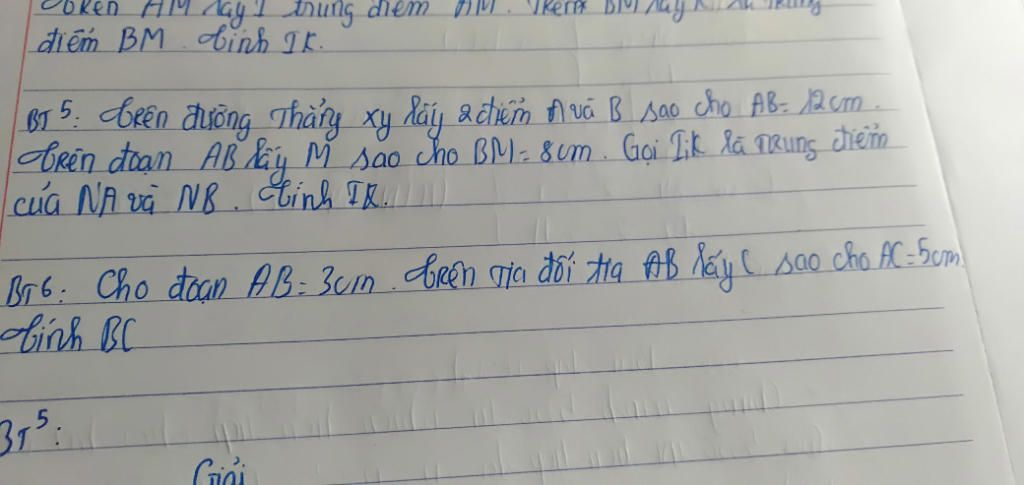 Trên AM lấy I trung điểm AM. Trên BM lấy K là trung
điểm BM. Tính IK.
BT5: Trên đường thẳng xy lấy 2 điểm A và B sao cho AB = 12cm.
Trên đoạn AB lấy M sao cho BM = 8cm. Gọi I;K là trung điểm
của NA và NB. Tính IK.
BT6: Cho đoạn AB = 3cm. Trên tia đối tia AB lấy C sao cho AC = 5cm.
Tính BC
BT5:
Giải